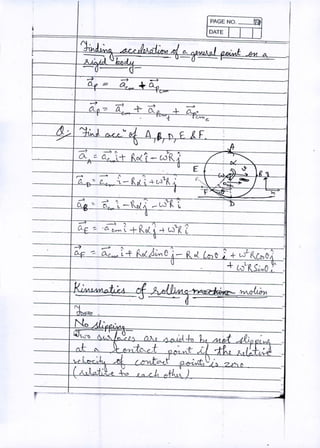 PAGE NO.
DATE
Finding acceleration of a general point on a
rigid body
a⃗p = a⃗cm + a⃗pcm
a⃗p = a⃗cm + a⃗p + a⃗p
Q. Find accⁿ of A, B, D, E & F.
a⃗A = acm î + Rα î − ω²R ĵ
a⃗D = acm î − Rα î + ω²R ĵ
a⃗B = acm î − Rα ĵ − ω²R î
a⃗E = acm î + Rα ĵ + ω²R î
a⃗F = acm î + Rα sinθ ĵ − Rα cosθ î + ω²R cosθ ĵ
+ ω²R sinθ î
A
α
E
B
ω
v
R
F
θ
D
Kinematics of rolling motion
No slipping
Two surfaces are said to be not slipping
at a contact point if the relative
velocity of contact points is zero.
(relative to each other)